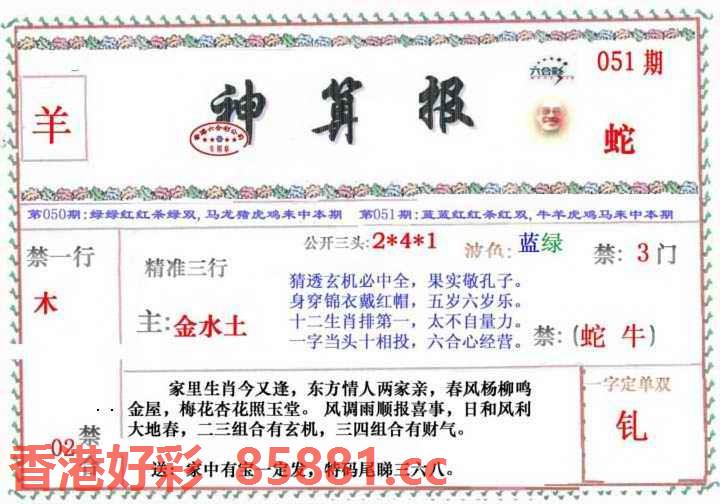 神算报
六合彩
051期
羊
蛇
第050期:绿绿红红条绿双,马龙猪虎鸡来中本期 第051期:蓝蓝红红条红双,牛羊虎鸡马来中本期
禁一行
木
精准三行
主:金水土
公开三头:2*4*1
波色:蓝绿
禁:3门
猜透玄机必中全，果实敬孔子。
身穿锦衣戴红帽，五岁六岁乐。
十二生肖排第一，太不自量力。
一字当头十相投，六合心经营。
禁:(蛇 牛)
家里生肖今又逢，东方情人两家亲，春风杨柳鸣
金屋，梅花杏花照玉堂。 风调雨顺报喜事，日和风利
大地春，二三组合有玄机，三四组合有财气。
送：家中有宝一定发，特码尾睇三六八。
一字定单双
钆
02
禁
合
香港好彩 85881.cc